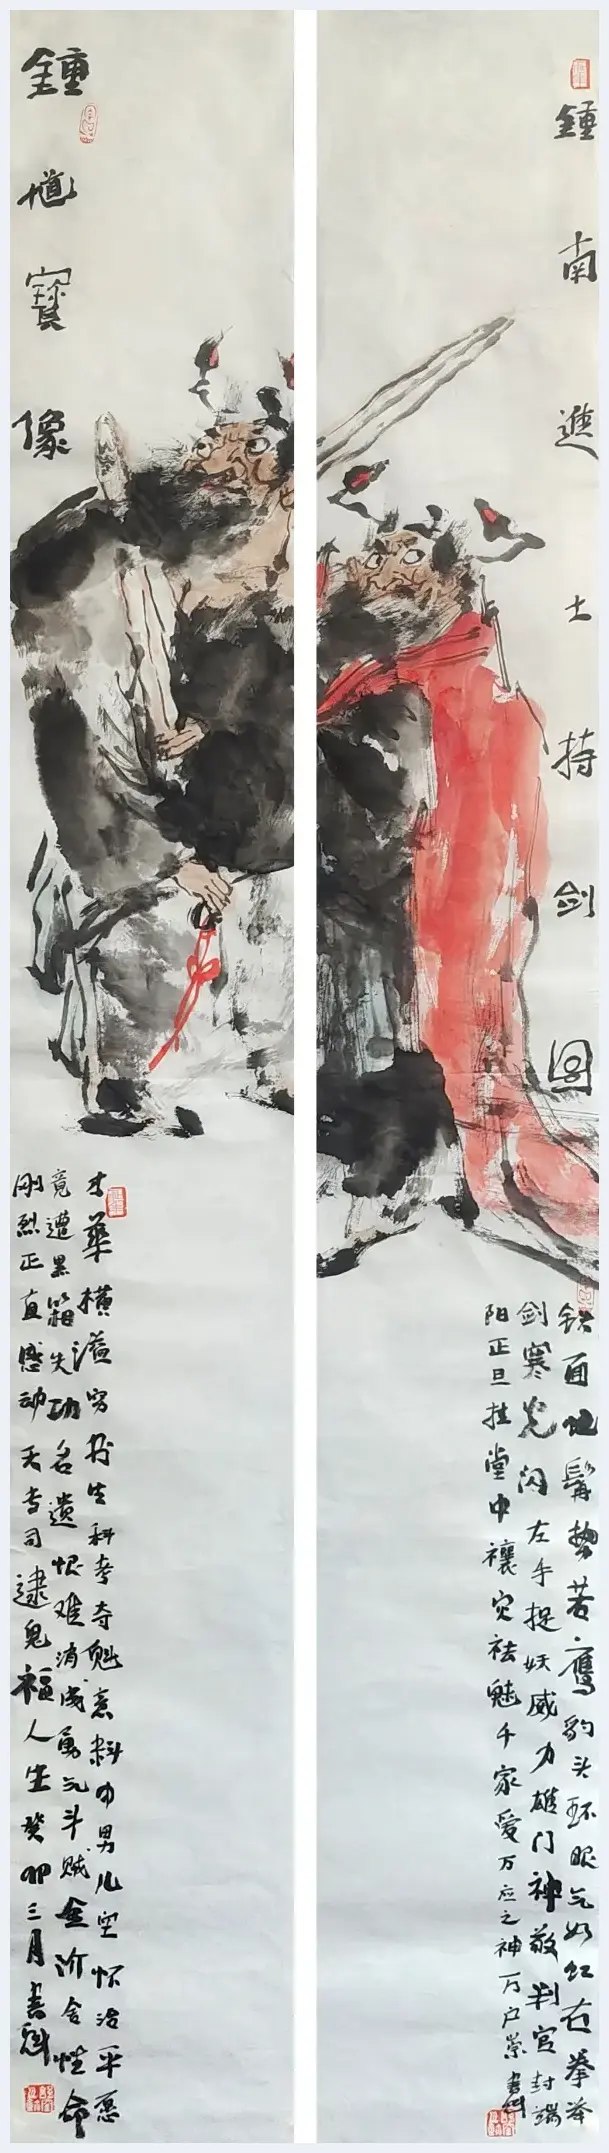 鍾南進士持剑图
铁面虬髯势若鹰豹头环眼气如虹右拳举
剑寒光闪左手捉妖威力雄门神敬判官封端
阳正旦挂堂中禳灾祛魅千家爱万应之神万户崇 書科
鍾馗寳像
才華横溢穷书生科考夺魁意料中男儿空怀治平愿
竟遭黑箱失功名遗恨难消成勇气斗贼無价舍性命
刚烈正直感动天专司逮鬼福人生癸卯三月書科